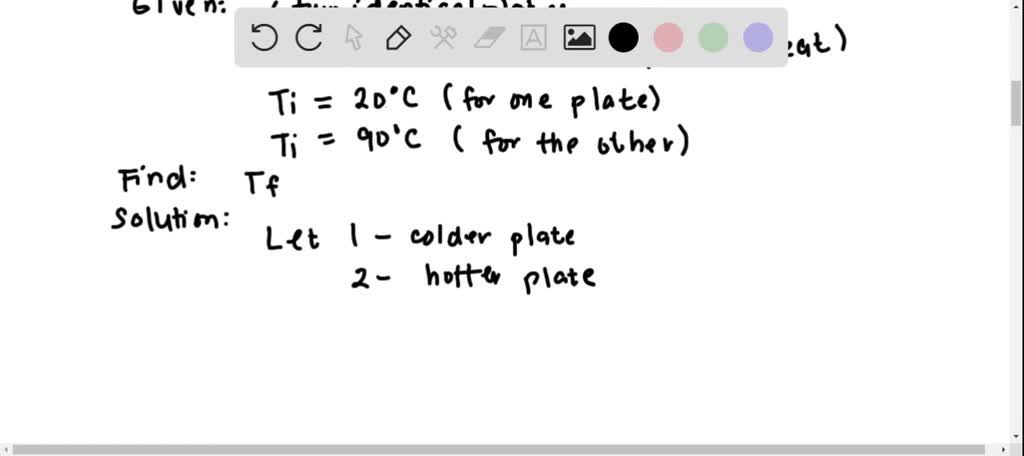 Given:
Ti = 20°C (for one plate)
Ti = 90°C (for the other)
Find: Tf
Solution:
Let 1 - colder plate
2 - hotter plate